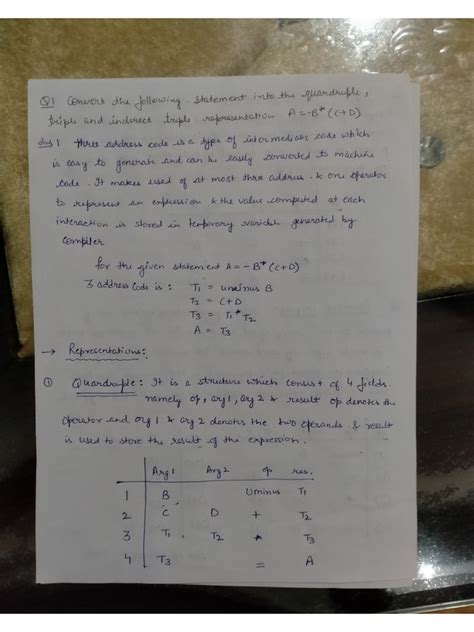 Q1 Convert the following statement into the quadruple,
triple and indirect triple representation A=-B*(C+D)
Ans 1 three address code is a type of intermediate code which
is easy to generate and can be easily converted to machine
code. It makes used of at most three address & one operator
to represent an expression & the value computed at each
interaction is stored in temporary variable generated by
compiler
for the given statement A=-B*(C+D)
3 address code is : T1 = uminus B
T2 = C+D
T3 = T1*T2
A = T3
→ Representations:
① Quadruple: It is a structure which consist of 4 fields.
namely op, arg1, arg2 & result op denotes the
operator and arg 1 & arg 2 denots the two operands & result
is used to store the result of the expression.
Arg1 Arg2 op res.
1 B Uminus T1
2 C D + T2
3 T1 T2 * T3
4 T3 = A